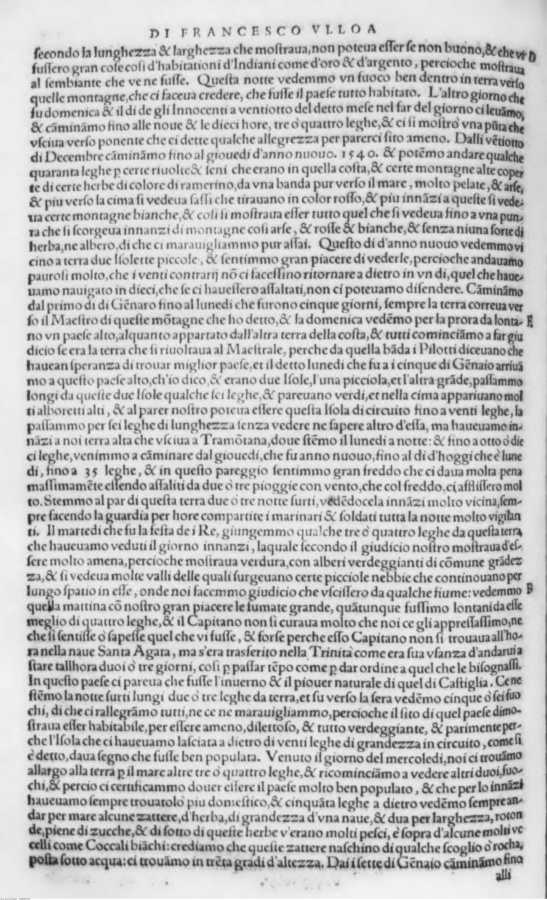 DI FRANCESCO VLLOA
secondo la lunghezza & larghezza che mostraua, non poteua esser se non buono, & che vi D
fussero gran cose cosi d'habitationi d'Indiani come d'oro & d'argento, percioche mostraua
al sembiante che ve ne fusse. Questa notte vedemmo vn fuoco ben dentro in terra verso
quelle montagne, che ci faceua credere, che fusse il paese tutto habitato. L'altro giorno che
fu domenica & il di de gli Innocenti a ventiotto del detto mese nel far del giorno ci leuāmo,
& cāmināmo fino alle noue & le dieci hore, tre ò quattro leghe, & ci si mostrò vna pūta che
vsciua verso ponente che ci dette qualche allegrezza per parerci sito ameno. Dalli vētiotto
di Decembre cāmināmo fino al giouedi d'anno nuouo. 1540. & potēmo andare qualche
quaranta leghe p certe riuolte & seni che erano in quella costa, & certe montagne alte coper
te di certe herbe di colore di ramerino, da vna banda pur verso il mare, molto pelate, & arse,
& piu verso la cima si vedeua sassi che tirauano in color rosso, & piu innāzi a queste si vede-
ua certe montagne bianche, & cosi si mostraua esser tutto quel che si vedeua fino a vna pun-
ta che si scorgeua innanzi di montagne cosi arse, & rosse & bianche, & senza niuna sorte di
herba, ne albero, di che ci marauigliammo pur assai. Questo di d'anno nuouo vedemmo vi
cino a terra due Isolette piccole, & sentimmo gran piacere di vederle, percioche andauamo
paurosi molto, che i venti contrarij nō ci facessino ritornare a dietro in vn di, quel che haue-
uamo nauigato in dieci, che se ci hauessero assaltati, non ci poteuamo difendere. Cāmināmo
dal primo di di Gēnaro fino al lunedi che furono cinque giorni, sempre la terra correua ver
so il Maestro di queste mōtagne che ho detto, & la domenica vedēmo per la prora da lonta- E
no vn paese alto, alquanto appartato dall'altra terra della costa, & tutti cominciāmo a far giu
dicio se era la terra che si riuoltaua al Maestrale, perche da quella bāda i Pilotti diceuano che
haueano speranza di trouar miglior paese, et il detto lunedi che fu a i cinque di Genaro arriuā
mo a questo paese alto, ch'io dico, & erano due Isole, l'una picciola, et l'altra grāde, passammo
longi da queste due Isole qualche sei leghe, & pareuano verdi, et nella cima appariuano mol
ti alboretti alti, & al parer nostro poteua essere questa Isola di circuito fino a venti leghe, la
passammo per sei leghe di lunghezza senza vedere ne sapere altro d'essa, ma haueuamo in-
nāzi a noi terra alta che vsciua a Tramōtana, doue stēmo il lunedi a notte: & fino a otto ò die
ci leghe, venimmo a cāminare dal giouedi, che fu anno nuouo, fino al di d'hoggi che è lune
di, fino a 35 leghe, & in questo pareggio sentimmo gran freddo che ci daua molta pena
massimamēte essendo assaliti da due ò tre pioggie con vento, che col freddo, ci afflissero mol
to. Stemmo al par di questa terra due ò tre notte surti, vedēdocela innāzi molto vicina, sem-
pre facendo la guardia per hore compartite i marinari & soldati tutta la notte molto vigilan
ti. Il martedi che fu la festa de i Re, giungemmo qualche tre ò quattro leghe da questa terra,
che haueuamo veduti il giorno innanzi, laquale secondo il giudicio nostro mostraua d'es-
sere molto amena, perche mostraua verdura, con alberi verdeggianti di cōmune grādez
za, & si vedeua molte valli delle quali surgeuano certe picciole nebbie che continouano per
lungo spatio in esse, onde noi facemmo giudicio che vscissero da qualche fiume: vedemmo
quella mattina cō nostro gran piacere le fumate grande, quātunque fussimo lontani da esse
meglio di quattro leghe, & il Capitano non si curaua molto che noi ce gli appressassimo, ne
che si sentisse ò sapesse quel che vi fusse, & forse perche esso Capitano non si trouaua all'ho-
ra nella naue Santa Agata, ma s'era trasferito nella Trinità come era sua vsanza d'andarui a
stare tallhora duoi ò tre giorni, cosi p passar tēpo come p dar ordine a quel che le bisognassi.
In questo paese ci pareua che fusse l'inuerno & il piouer naturale di quel di Castiglia. Ce ne
stēmo la notte surti lungi due ò tre leghe da terra, et su verso la sera vedēmo cinque ò sei fuo
chi, di che ci rallegrāmo tutti, ne ce ne marauigliammo, percioche il sito di quel paese dimo-
straua esser habitabile, per essere ameno, dilettoso, & tutto verdeggiante, & parimente per-
che l'Isola che ci haueuamo lasciata a dietro di venti leghe di grandezza in circuito, come si
è detto, daua segno che fusse ben populata. Venuto il giorno del mercoledi, noi ci trouāmo
allargo alla terra p il mare altre tre ò quattro leghe, & ricominciāmo a vedere altri duoi, fuo-
chi, & percio ci certificammo douer essere il paese molto ben populato, & che per lo innāzi
haueuamo sempre trouatolo piu domestico, & cinquāta leghe a dietro vedēmo sempre an-
dar per mare alcune zattere, d'herba, di grandezza d'vna naue, & dua per larghezza, roton
de, piene di zucche, & di sotto di queste herbe v'erano molti pesci, è sopra d'alcune molti vc
celli come Coccali biāchi: crediamo che queste zattere naschino di qualche scoglio ò rocha,
posta sotto acqua: ci trouāmo in trēta gradi d'altezza. Dai i sette di Gēnaio cāmināmo fino
alli